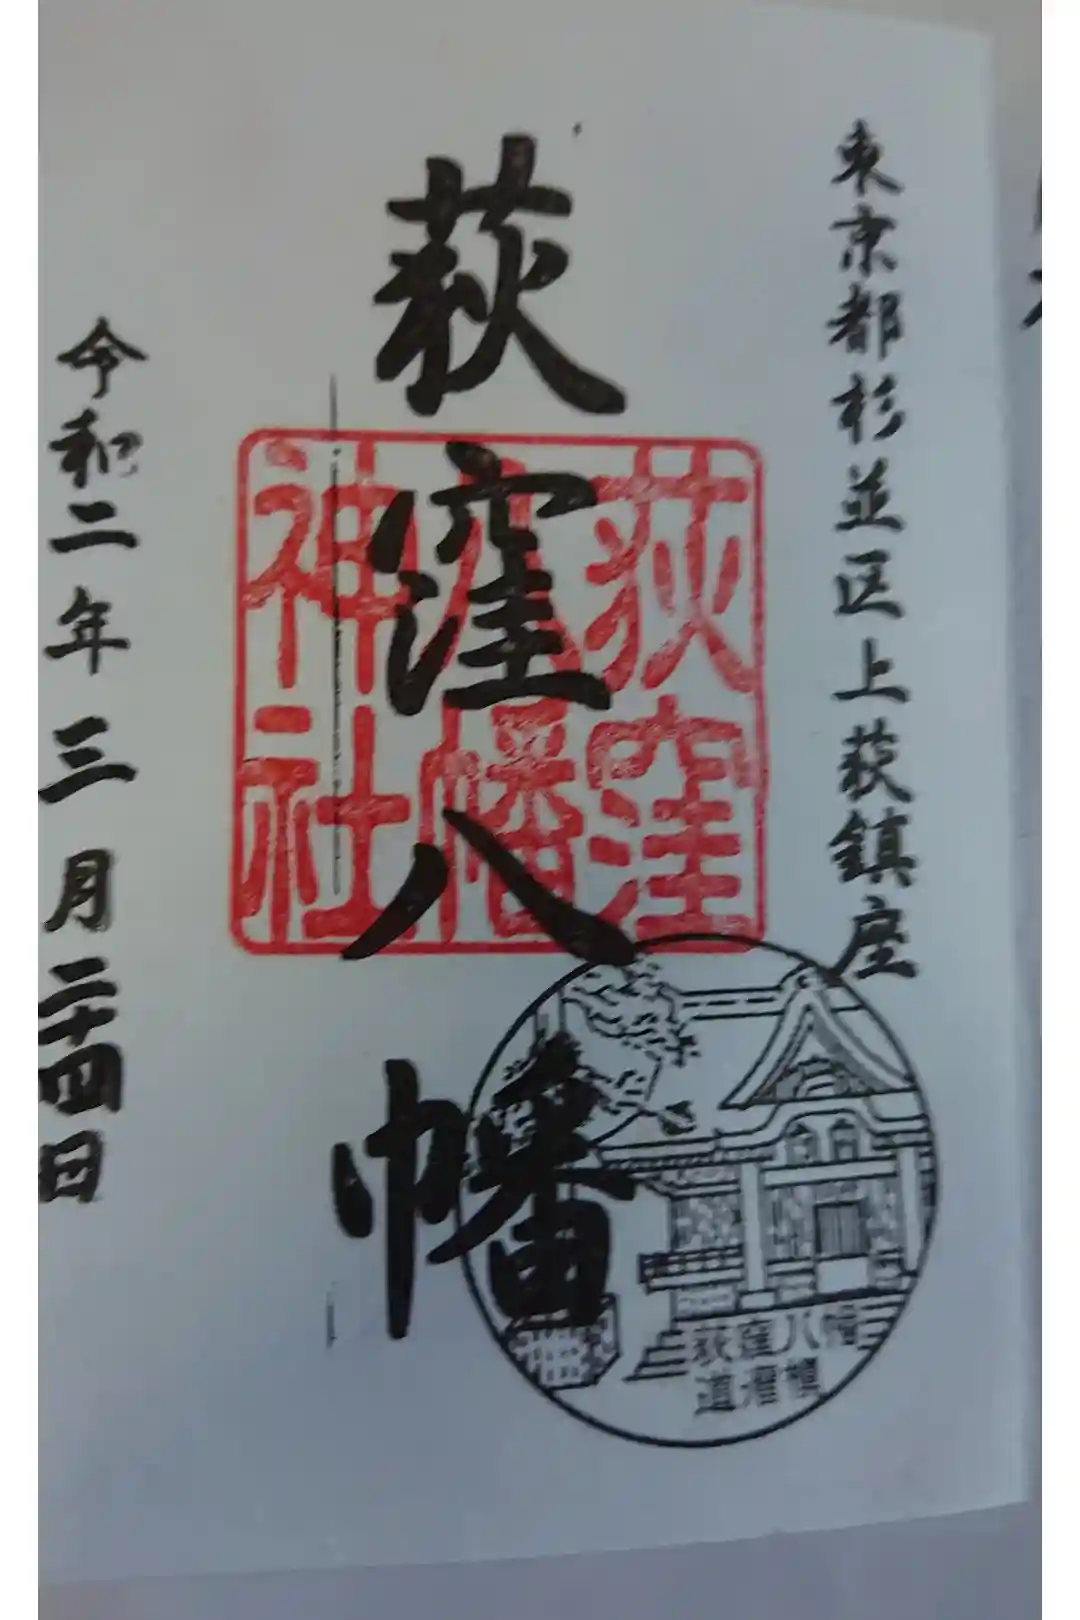 東京都杉並区上荻鎮座
荻窪八幡
荻窪
八幡
神社
令和二年三月二十四日
荻窪八幡
道灌槇